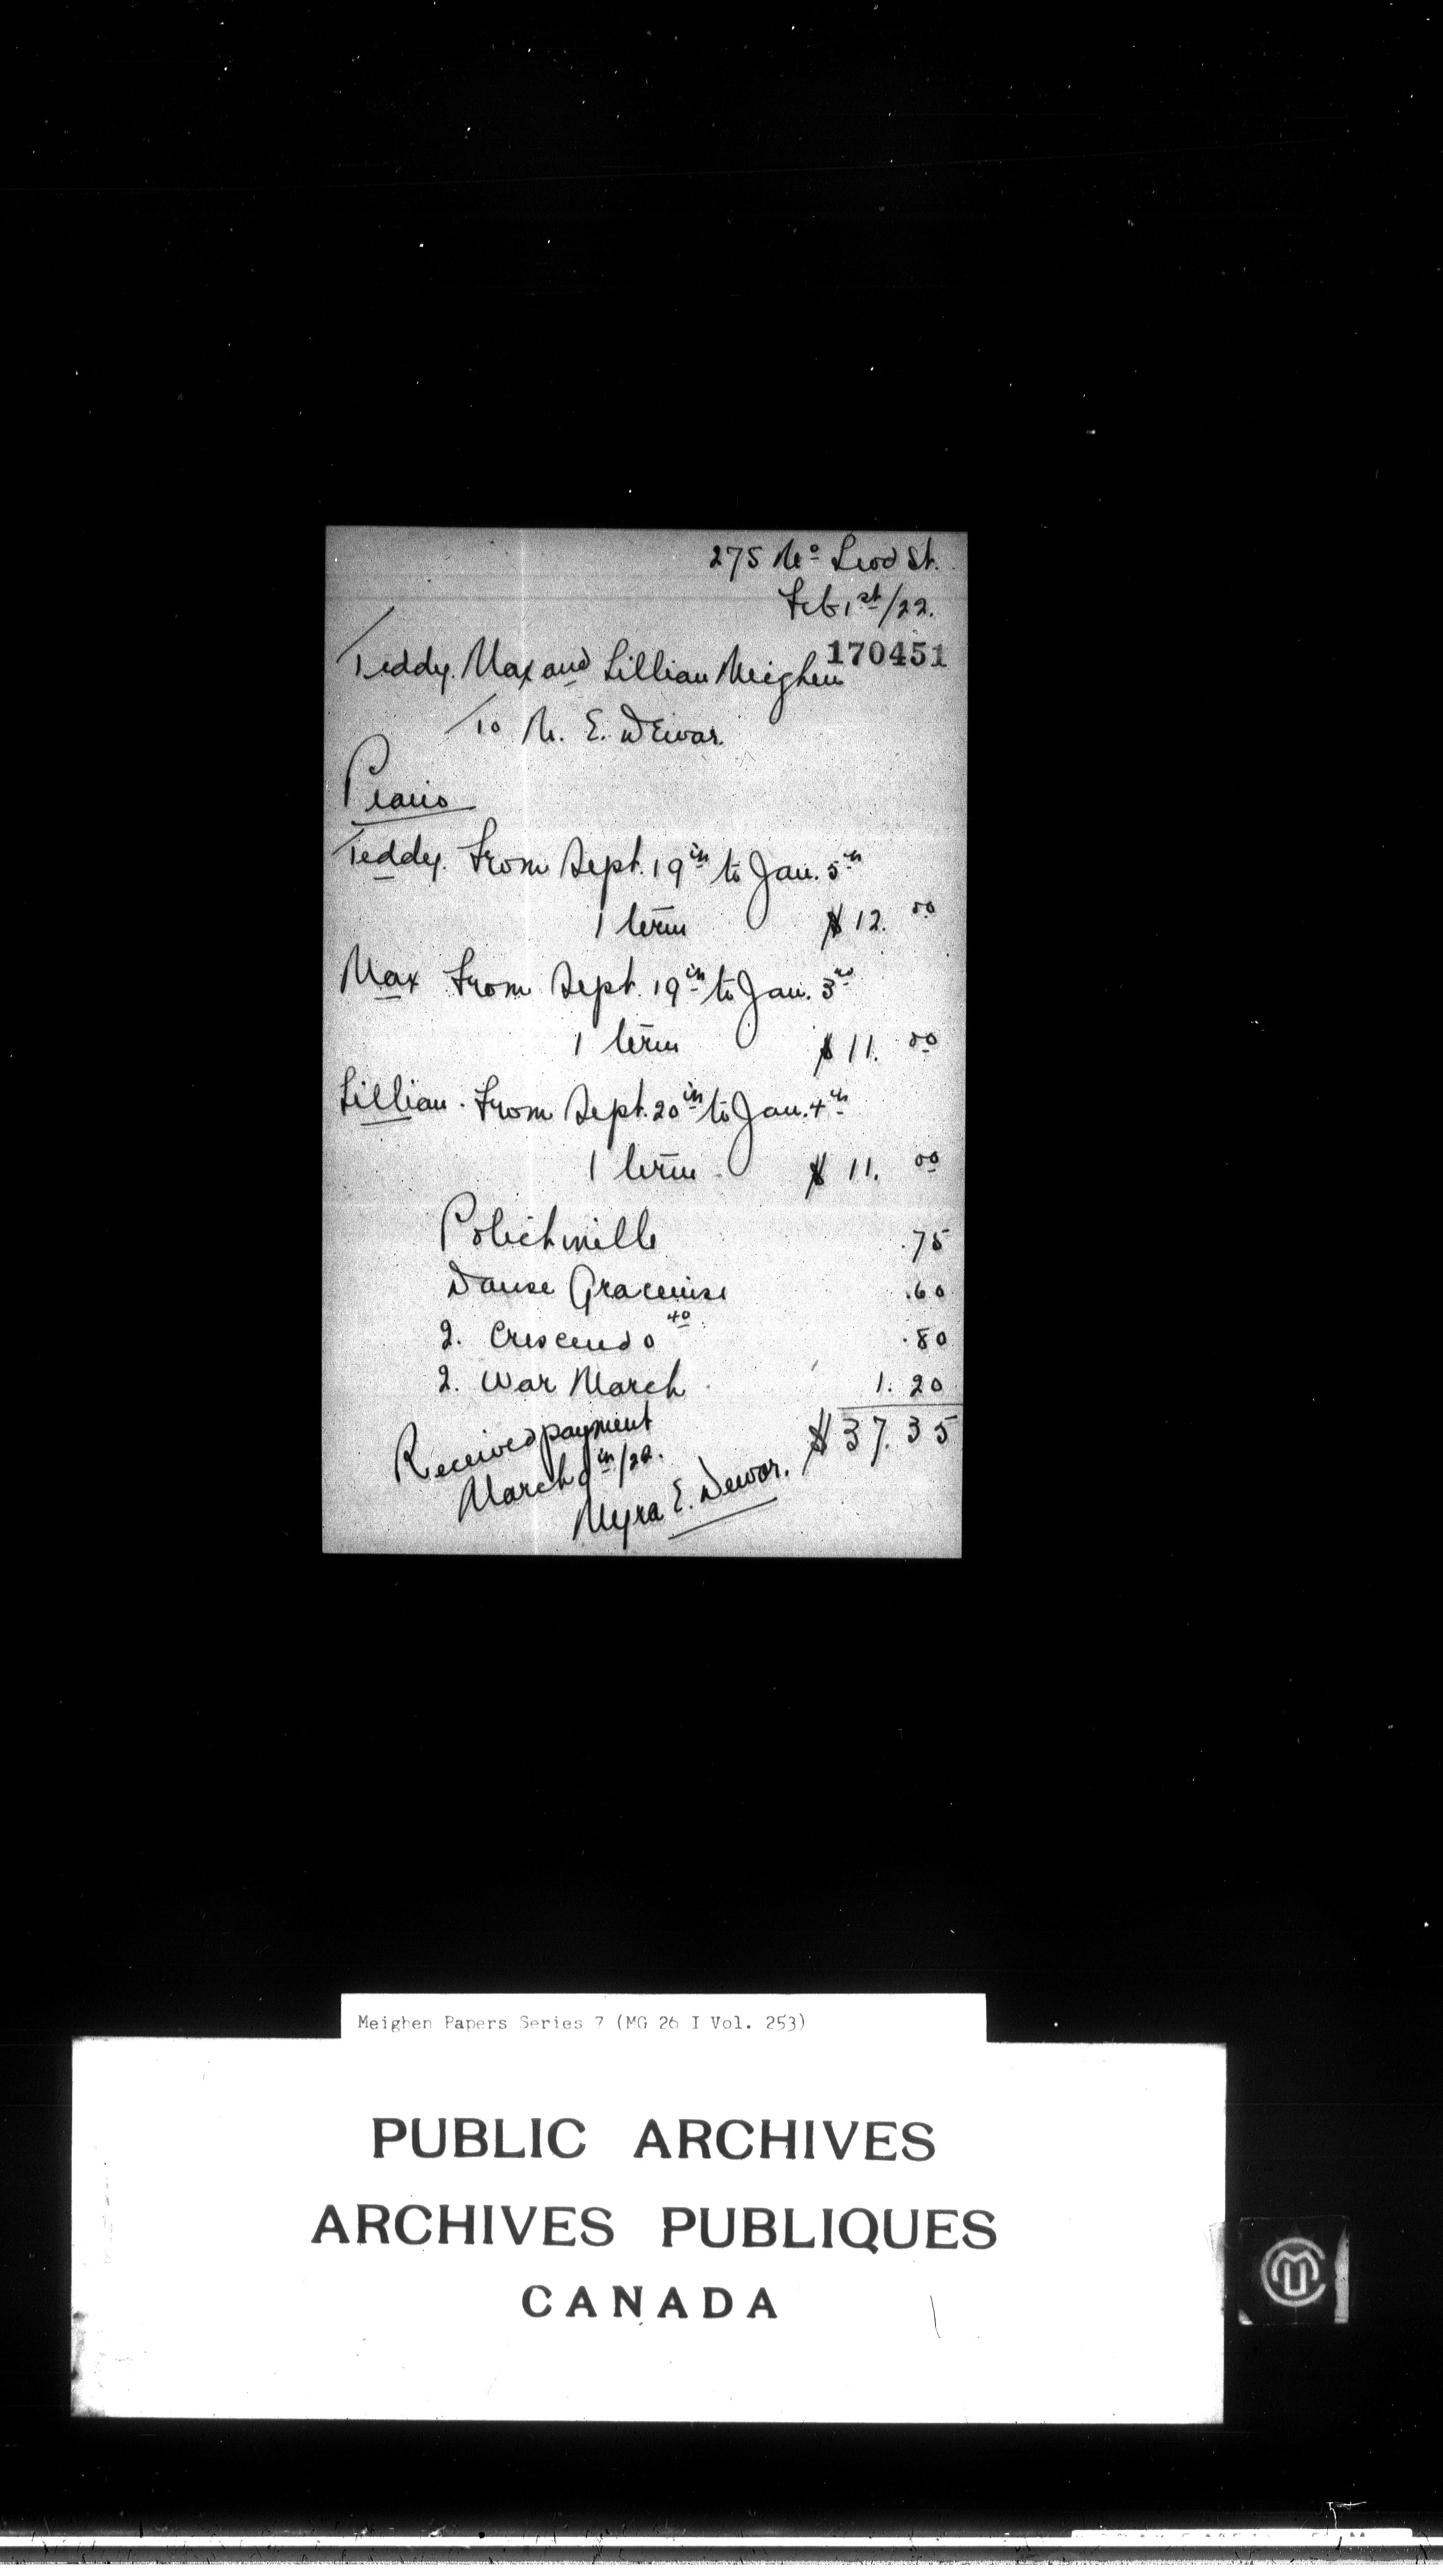 275 Mc Leod St.
Feb 1st/22.
170451
Teddy. Max and Lillian Meighen
To M. E. Dewar.
Piano
Teddy. From Sept. 19th to Jan. 5th
1 term $12.00
Max From Sept. 19th to Jan. 3rd
1 term $11.00
Lillian. From Sept. 20th to Jan. 4th
1 term $11.00
Polichinelle .75
Danse Gracieuse .60
2. Crescendo 40 .80
2. War March 1.20
$37.35
Received payment
March 9th/22.
Myra E. Dewar.
Meighen Papers Series 7 (MG 26 I Vol. 253)
PUBLIC ARCHIVES
ARCHIVES PUBLIQUES
CANADA